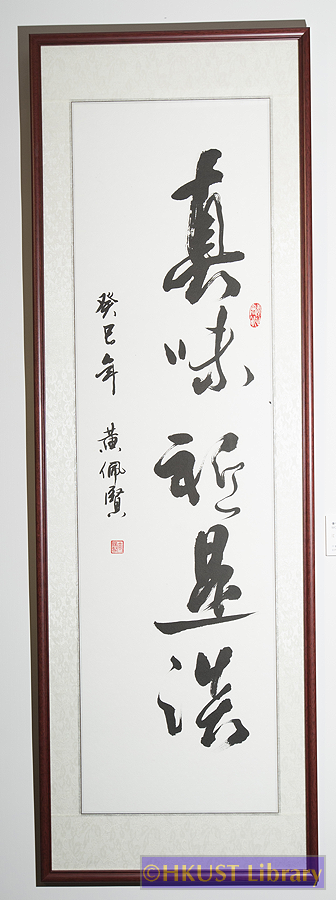 真味祇是淡
癸巳年 黃佩賢
©HKUST Library